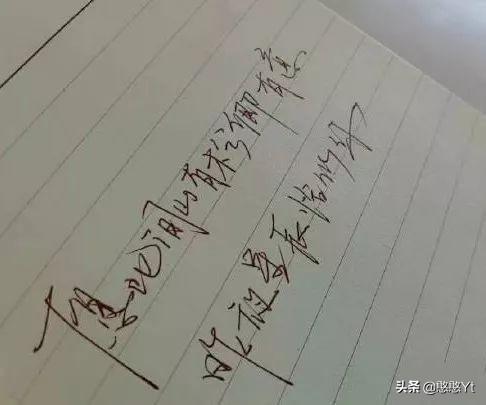 愿此间山有木兮卿有意
昨夜星辰恰似你
头条 @憨憨Yt